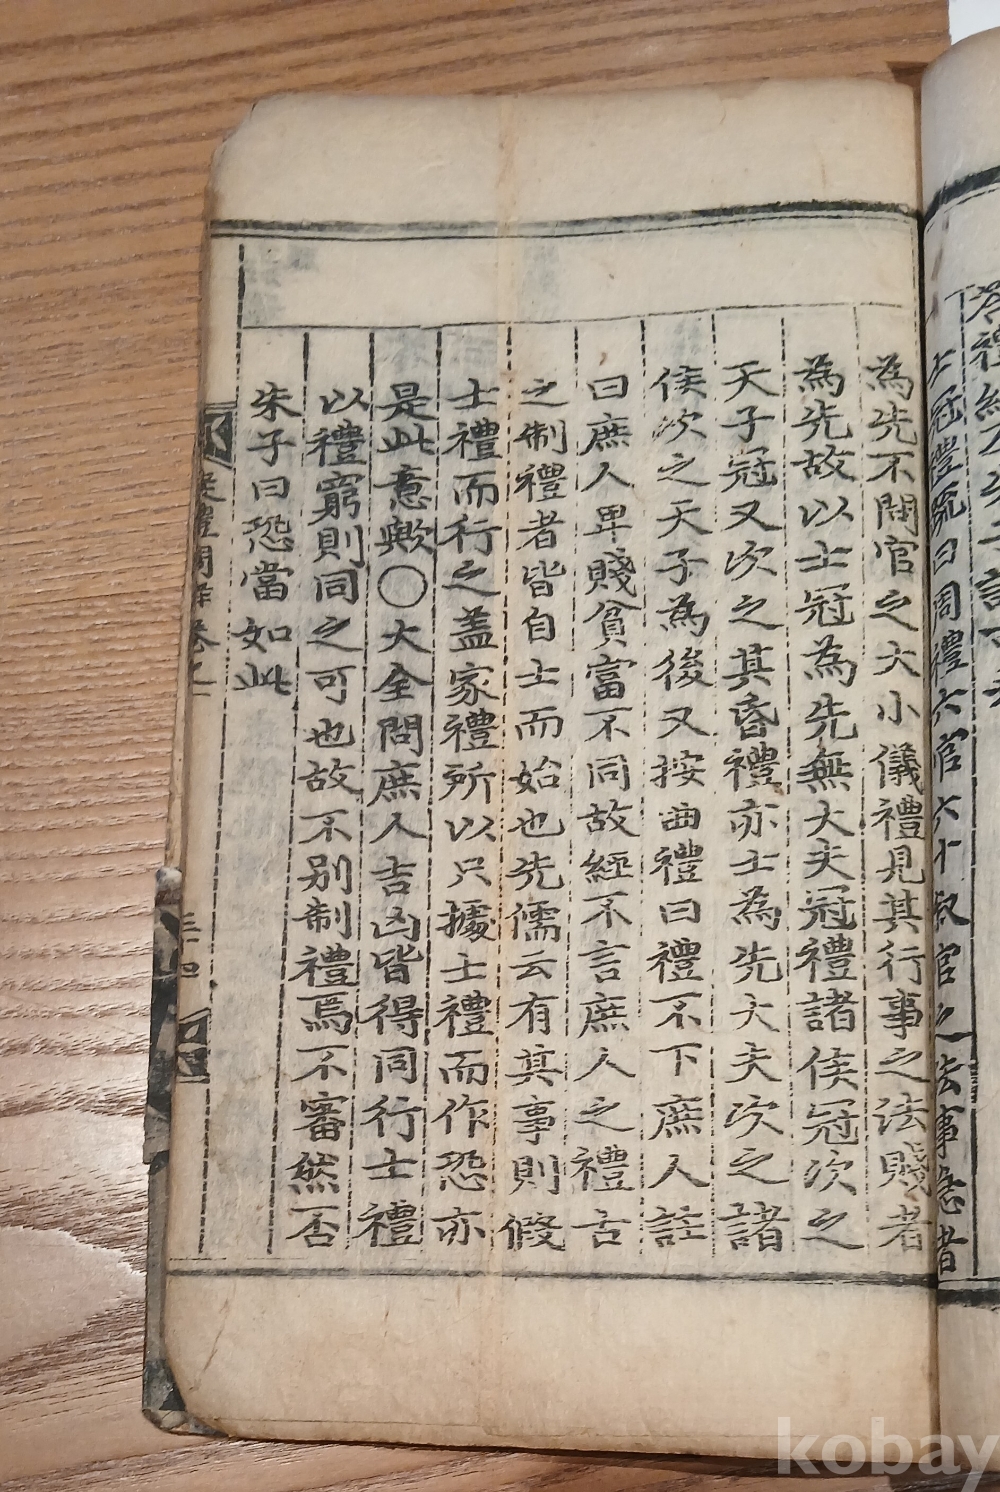 答禮經
士冠禮疏曰周禮六官六十敍官之法事急者
為先不問官之大小儀禮見其行事之法賤者
為先故以士冠為先無大夫冠禮諸侯冠次之
天子冠又次之其昏禮亦士為先大夫次之諸
侯次之天子為後又按曲禮曰禮不下庶人註
曰庶人卑賤貧富不同故經不言庶人之禮古
之制禮者皆自士而始也先儒云有其事則假
士禮而行之盖家禮所以只據士禮而作恐亦
是此意歟〇大全問庶人吉凶皆得同行士禮
以禮窮則同之可也故不别制禮焉不審然否
朱子曰恐當如此
疑禮問解 卷之
三十四
kobay